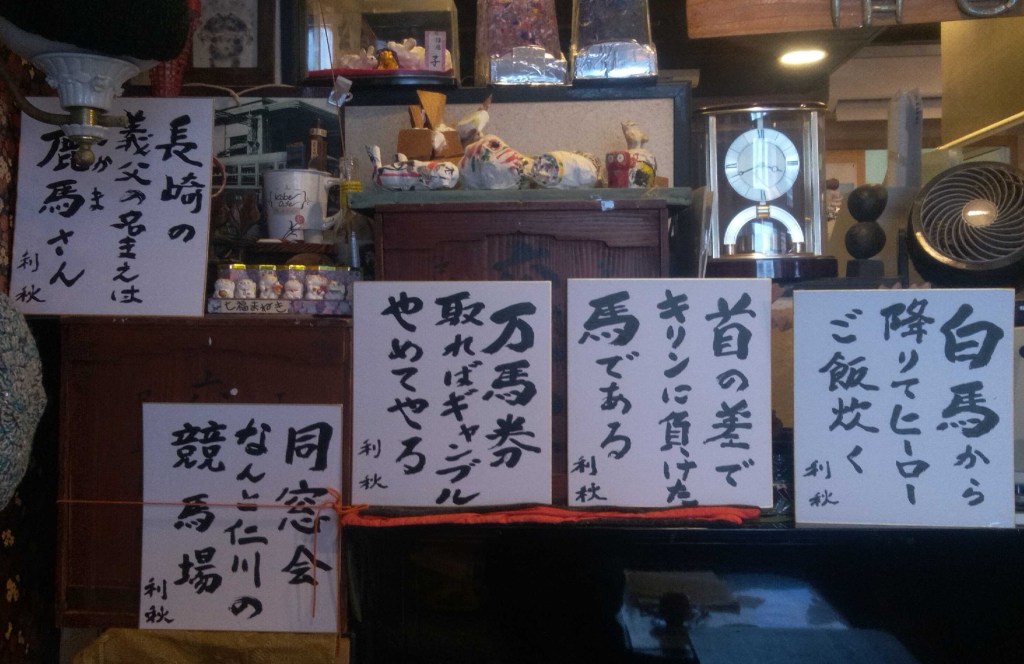 長崎の
義父の名まえは
鹿馬さん
かま
利秋
同窓会
なんと仁川の
競馬場
利秋
万馬券
取ればギャンブル
やめてやる
利秋
首の差で
キリンに負けた
馬である
利秋
白馬から
降りてヒーロー
ご飯炊く
利秋
七福まねき